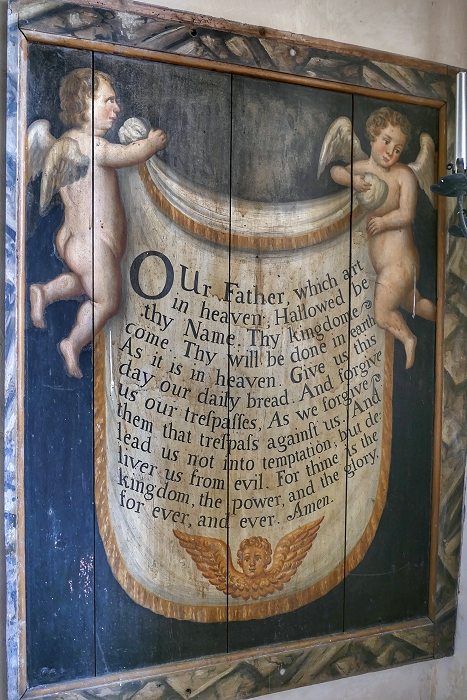 OUr Father, which art
in heaven: Hallowed be
thy Name. Thy kingdome
come. Thy will be done in earth
As it is in heaven. Give us this
day our daily bread. And forgive
us our treſpaſſes, As we forgive
them that treſpaſs againſt us. And
lead us not into temptation, but de:
liver us from evil. For thine is the
kingdom, the power, and the glory,
for ever, and ever. Amen.